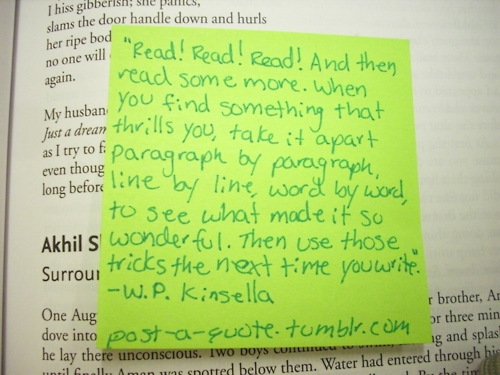 I hiss gibberish; she panics,
slams the door handle down and hurls
her ripe bod
no one will
again.
My husban
Just a dream
as I try to f
even thoug
long before
"Read! Read! Read! And then
read some more. When
you find something that
thrills you, take it apart
paragraph by paragraph,
line by line, word by word,
to see what made it so
wonderful. Then use those
tricks the next time you write."
-W.P. Kinsella
post-a-quote.tumblr.com
Akhil S
Surrour
One Aug
r brother, An
dove into
or three min
ng and splas
he lay there unconscious. Two boys continued to
until finally Aman was spotted below them. Water had entered through his